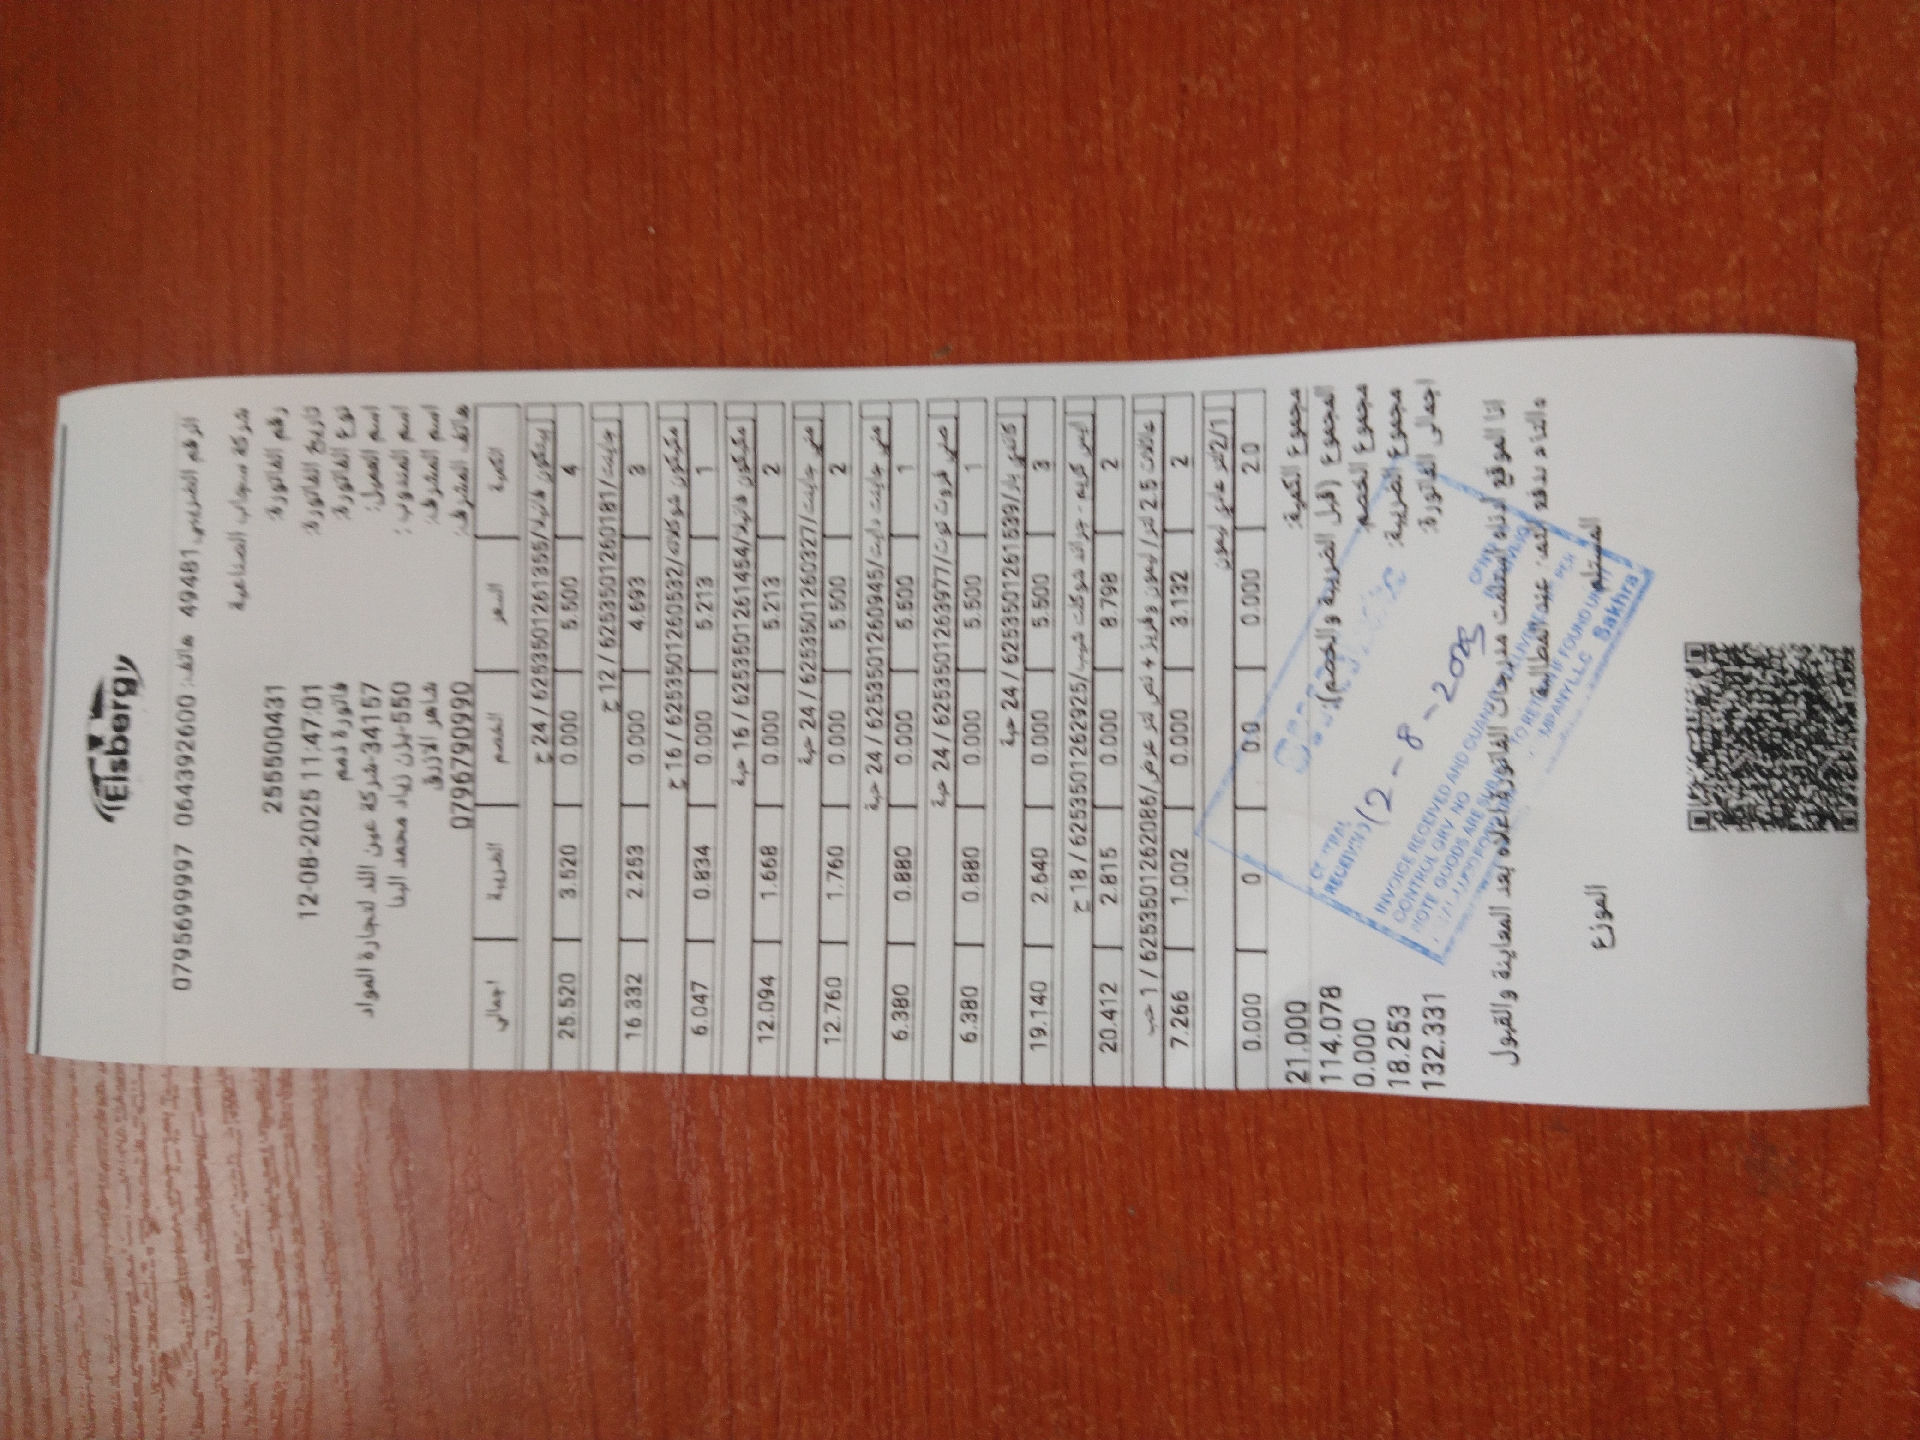 Elsberg
الرقم الضريبي 49481 هاتف: 0643926000 0795699997
شركة سنجاب الصناعية
رقم الفاتورة: 255500431
تاريخ الفاتورة: 12-08-2025 11:47:01
نوع الفاتورة: فاتورة ذمم
اسم العميل: 34157-شركة عين اللد لتجارة المواد
اسم المندوب: 550-يزن زياد محمد البنا
اسم المشرف: شاهر الازرق
هاتف المشرف: 0796790990
الكمية السعر الخصم الضريبة اجمالي
بيتكون فانيلا/6253501261355 / 24 ح
4 5.500 0.000 3.520 25.520
جاينت/6253501260181 / 12 ح
3 4.693 0.000 2.253 16.332
ميكيكون شوكلاته/6253501260532 / 16 ح
1 5.213 0.000 0.834 6.047
ميكيكون فانيلا/6253501261454 / 16 حبة
2 5.213 0.000 1.668 12.094
ميني جاينت/6253501260327 / 24 حبة
2 5.500 0.000 1.760 12.760
ميني جاينت دايت/6253501260945 / 24 حبة
1 5.500 0.000 0.880 6.380
ميني فروت توت/6253501263977 / 24 حبة
1 5.500 0.000 0.880 6.380
كاندي بار/6253501261539 / 24 حبة
3 5.500 0.000 2.640 19.140
ايس كريم - جراند شوكلت شيب/6253501262925 / 18 ح
2 8.798 0.000 2.815 20.412
عائلات 2.5 لتر/ ليمون وفريز + نص لتر عرض/6253501262086 / 1 حب
2 3.132 0.000 1.002 7.266
2/1لتر عادي ليمون
2.0 0.000 0.0 0 0.000
مجموع الكمية: 21.000
المجموع (قبل الضريبة والخصم): 114.078
مجموع الخصم: 0.000
مجموع الضريبة: 18.253
اجمالي الفاتورة: 132.331
RECEIVING
12-8-2025
INVOICE RECEIVED AND QUANTITY
CONTROL GRV NO
NOTE GOODS ARE
IF FOUND
Sakhra
انا الموقع ادناه استلمت مندرجات الفاتورة اعلاه بعد المعاينة والقبول
والتعهد بدفع عند المطالبة
المستلم الموزع